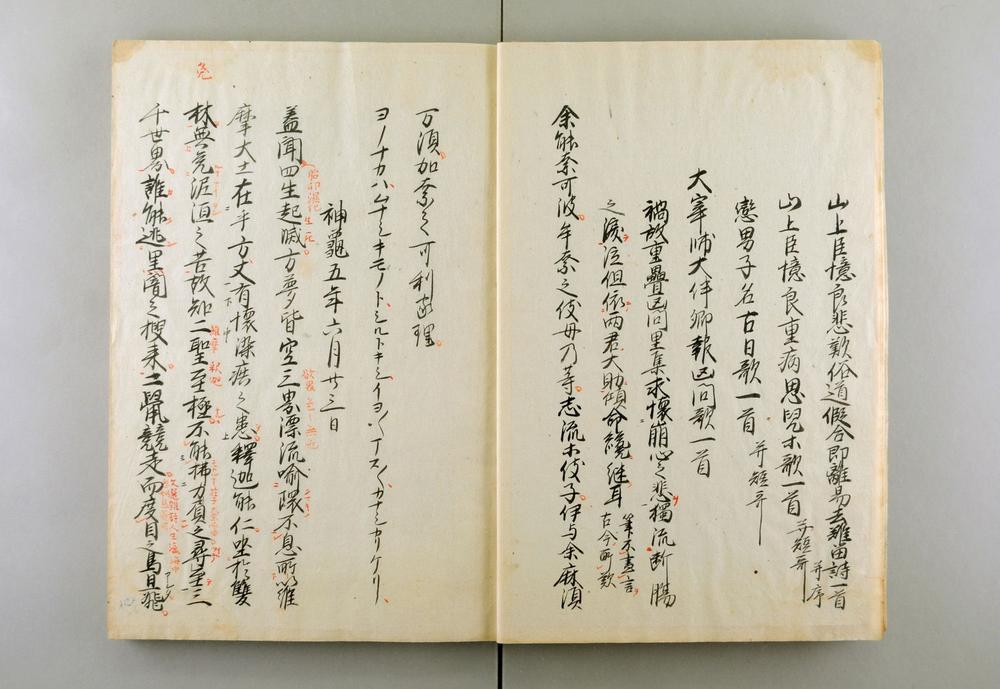 山上臣憶良悲歎俗道假合即離易去難留詩一首 并序
山上臣憶良重病思兒等歌一首 并短哥
戀男子名古日歌一首 并短哥
大宰帥大伴卿報凶問歌一首
禍故重疊凶問里集永懷崩心之悲獨流断腸
之淚但依兩君大助傾命纔継耳 筆不盡言 古今所歎
余能奈可波牟奈之伎母乃等志流等伎子伊与余麻須
万須加奈之可利家理
ヨノナカハムナシキモノトシルトキシイヨ〳〵マス〳〵カナシカリケリ
神龜五年六月廿三日
蓋聞四生起滅方夢皆空三界漂流喩環不息所以維
摩大士在乎方丈有懷染疾之患釋迦能仁坐於雙
林無免泥洹之苦故知二聖至極不能拂力負之尋至三
千世界誰能逃黑闇之搜来二鼠競走而度目之鳥旦飛